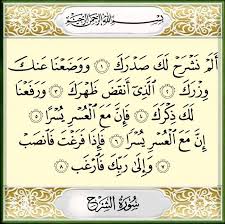 بِسْمِ اللَّهِ الرَّحْمَٰنِ الرَّحِيمِ
أَلَمْ نَشْرَحْ لَكَ صَدْرَكَ ١ وَوَضَعْنَا عَنكَ
وِزْرَكَ ٢ الَّذِي أَنقَضَ ظَهْرَكَ ٣ وَرَفَعْنَا
لَكَ ذِكْرَكَ ٤ فَإِنَّ مَعَ الْعُسْرِ يُسْرًا ٥
إِنَّ مَعَ الْعُسْرِ يُسْرًا ٦ فَإِذَا فَرَغْتَ فَانصَبْ
٧ وَإِلَىٰ رَبِّكَ فَارْغَب ٨
سُورَةُ الشَّرْحِ